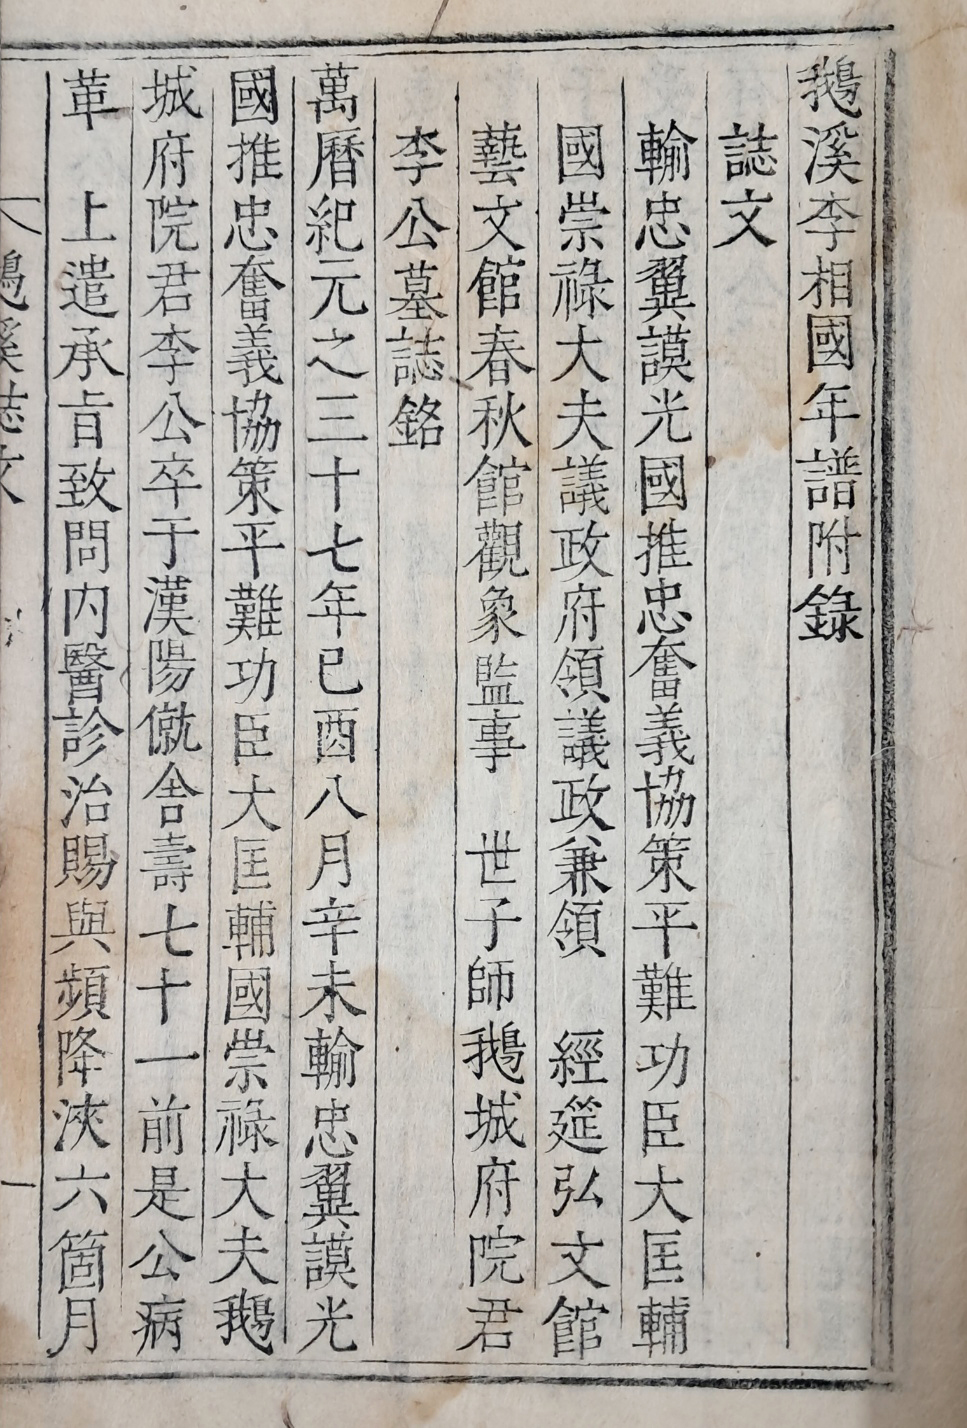 鵝溪李相國年譜附錄
誌文
輸忠翼謨光國推忠奮義協策平難功臣大匡輔
國崇祿大夫議政府領議政兼領　經筵弘文館
藝文館春秋館觀象監事　世子師鵝城府院君
李公墓誌銘
萬曆紀元之三十七年己酉八月辛未輸忠翼謨光
國推忠奮義協策平難功臣大匡輔國崇祿大夫鵝
城府院君李公卒于漢陽僦舍壽七十一前是公病
革　上遣承旨致問內醫診治賜與頻降浹六箇月
鵝溪誌文　一